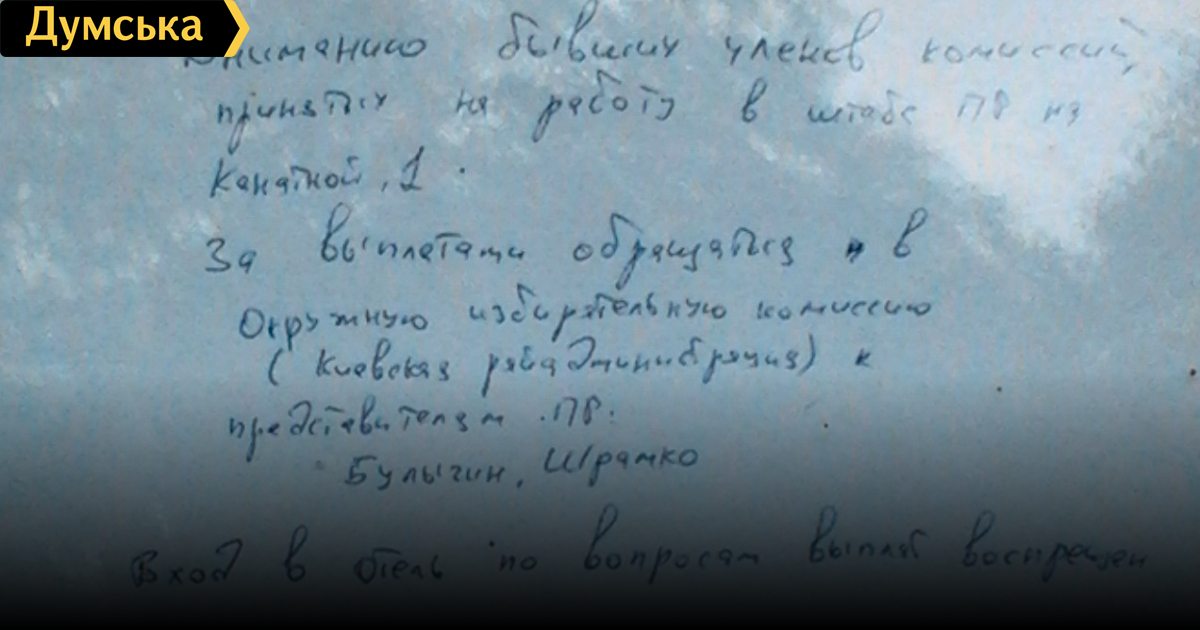 Думська
Вниманию бывших членов комиссий,
принятых на работу в штабе ПР на
Канатной, 1.
За выплатами обращаться в
Окружную избирательную комиссию
(Киевская райадминистрация) к
представителям ПР.
Булычин, Шрамко
Вход в отель по вопросам выплат воспрещен